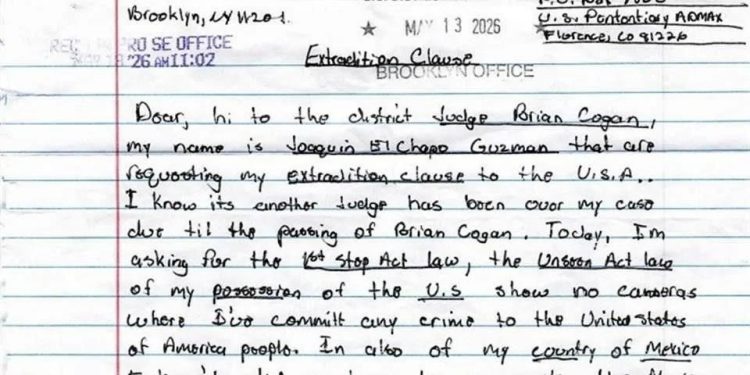 Brooklyn, NY
★ MAY 13 2026 ★
U.S. Pentontiary ADMAX
PRO SE OFFICE
Florence, CO 81226
'26 AM 11:02
Extradition Clause
BROOKLYN OFFICE
Dear, hi to the district Judge Brian Cogan,
my name is Joaquin El Chapo Guzman that are
requesting my extradition clause to the U.S.A..
I know its another Judge has been over my case
due til the passing of Brian Cogan. Today, I'm
asking for the 1st Stop Act law, the Unseen Act law
of my possession of the U.S show no cameras
where I've committ any crime to the United states
of America people. In also of my country of Mexico